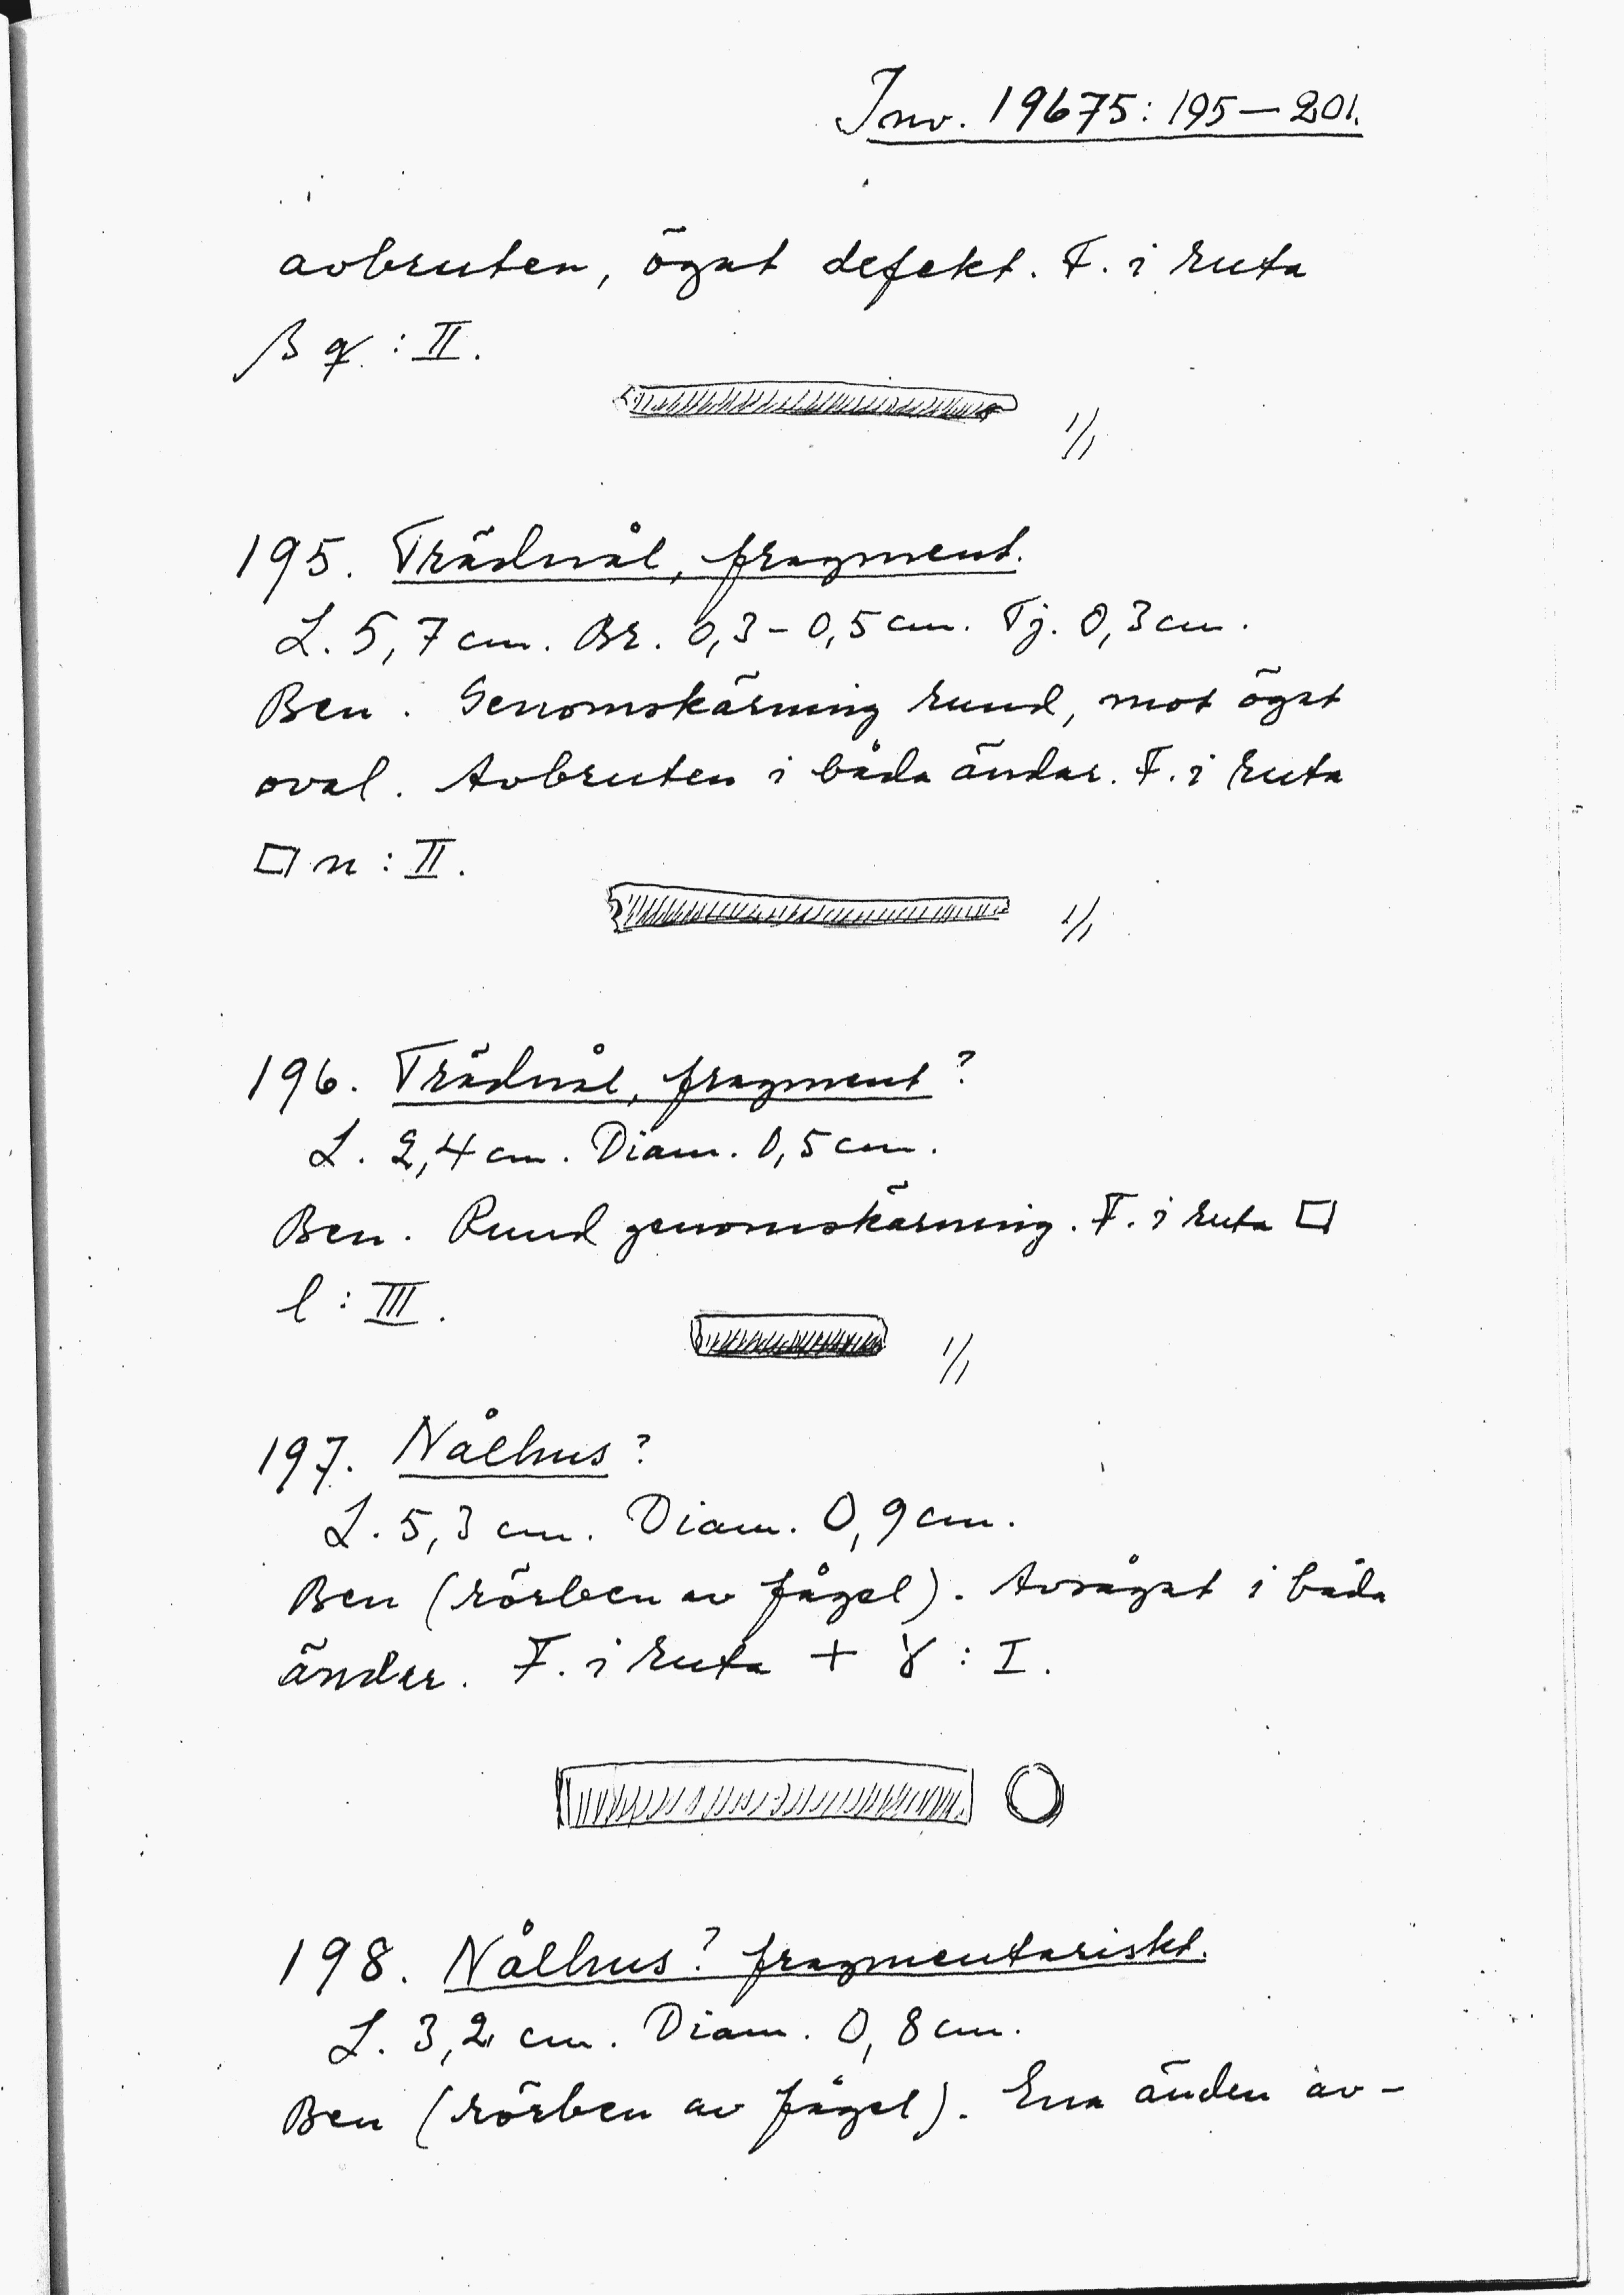 Inv. 19675: 195–201.
avbruten, ögat defekt. F. i ruta
β q : II.
1/1
195. Trådnål, fragment.
L. 5,7 cm. Br. 0,3–0,5 cm. Tj. 0,3 cm.
Ben. Genomskärning rund, mot ögat
oval. Avbruten i båda ändar. F. i ruta
□ n : II.
1/1
196. Trådnål, fragment?
L. 2,4 cm. Diam. 0,5 cm.
Ben. Rund genomskärning. F. i ruta □
l : III.
1/1
197. Nålhus?
L. 5,3 cm. Diam. 0,9 cm.
Ben (rörben av fågel). Avsågat i båda
ändar. F. i ruta + γ : I.
198. Nålhus? fragmentariskt.
L. 3,2 cm. Diam. 0,8 cm.
Ben (rörben av fågel). Ena änden av-